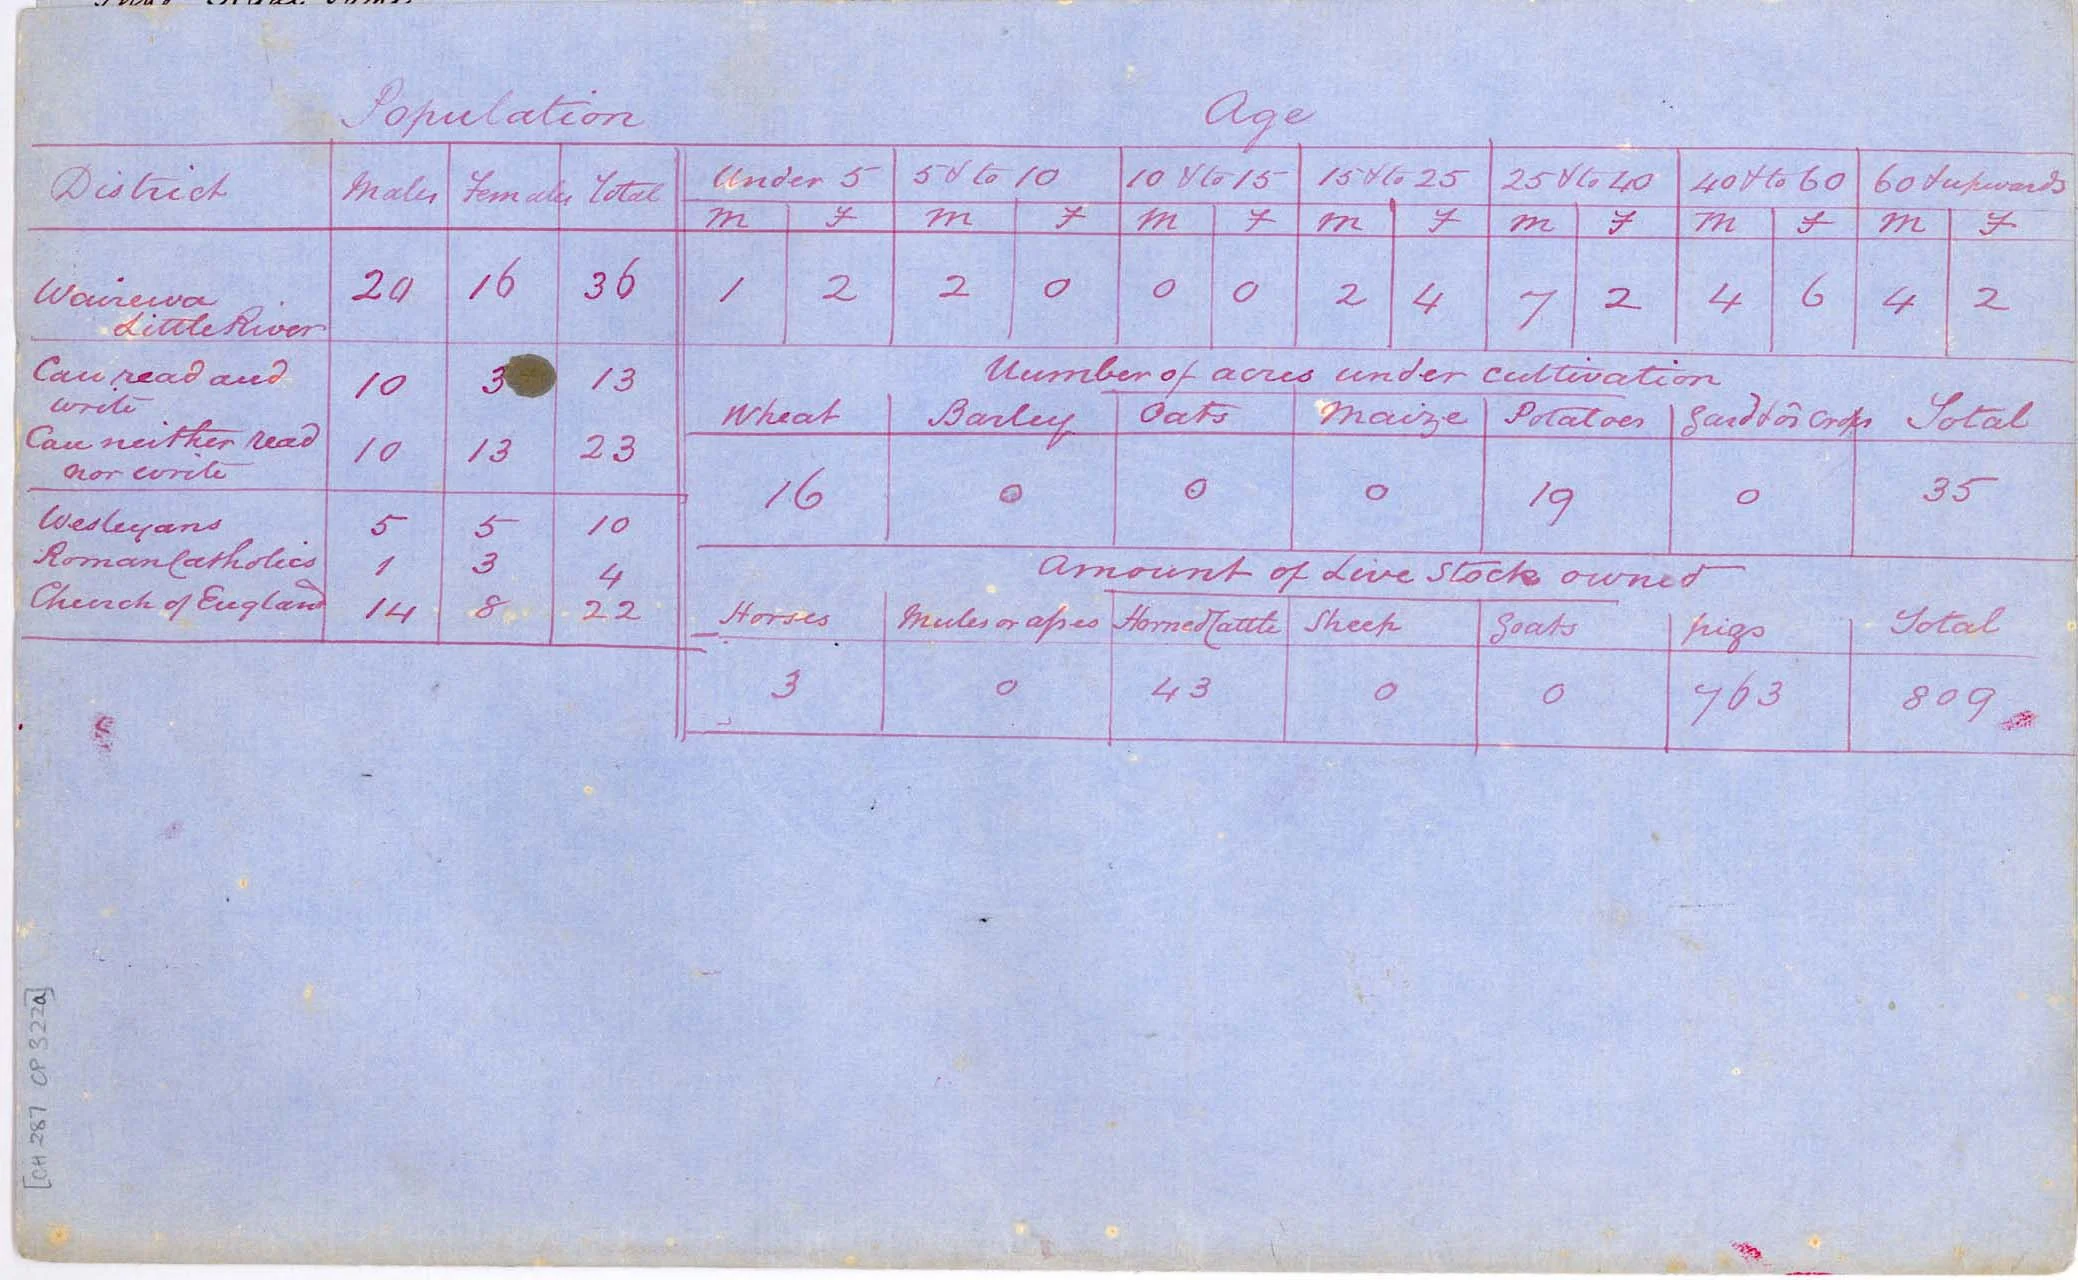 Population Age
District Males Females Total Under 5 5 & to 10 10 & to 15 15 & to 25 25 & to 40 40 & to 60 60 & upwards
M F M F M F M F M F M F M F
Wairewa
Little River 20 16 36 1 2 2 0 0 0 2 4 7 2 4 6 4 2
Can read and
write 10 3 13
Can neither read
nor write 10 13 23
Wesleyans 5 5 10
Roman Catholics 1 3 4
Church of England 14 8 22
Number of acres under cultivation
Wheat Barley Oats Maize Potatoes Gard & or Crops Total
16 0 0 0 19 0 35
Amount of Live Stock owned
Horses Mules or asses Horned Cattle Sheep Goats pigs Total
3 0 43 0 0 763 809
[CH 287 CP 322a]